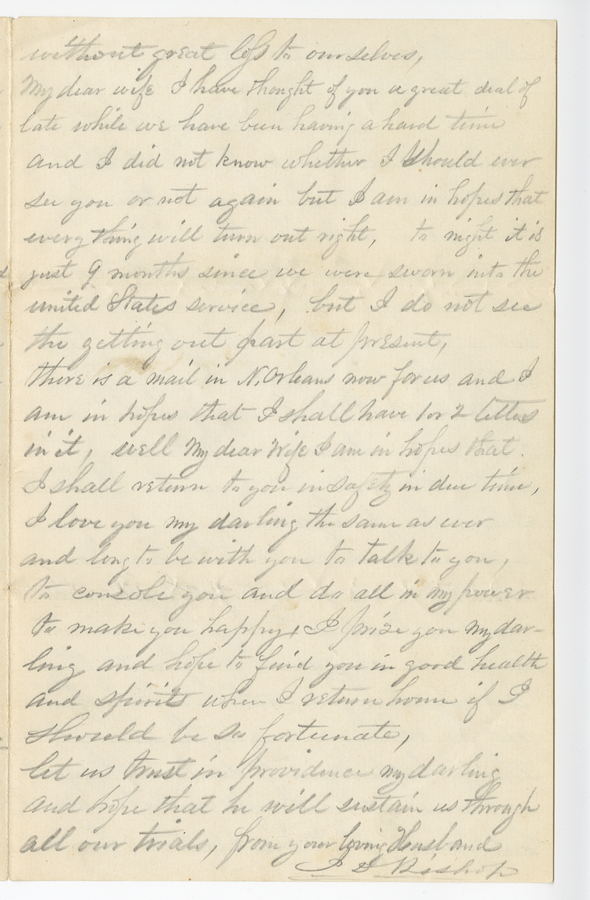 without great loss to ourselves,
My dear wife I have thought of you a great deal of
late while we have been having a hard time
and I did not know whether I should ever
see you or not again but I am in hopes that
every thing will turn out right, to night it is
just 9 months since we were sworn into the
united States service, but I do not see
the getting out part at present,
there is a mail in N. Orleans now for us and I
am in hopes that I shall have 1 or 2 letters
in it, well My dear Wife I am in hopes that
I shall return to you in safety in due time,
I love you my darling the same as ever
and long to be with you to talk to you,
to console you and do all in my power
to make you happy, I prize you my dar-
ling and hope to find you in good health
and spirits when I return home if I
should be so fortunate,
let us trust in providence my darling
and hope that he will sustain us through
all our trials, from your loving Husband
Bishop